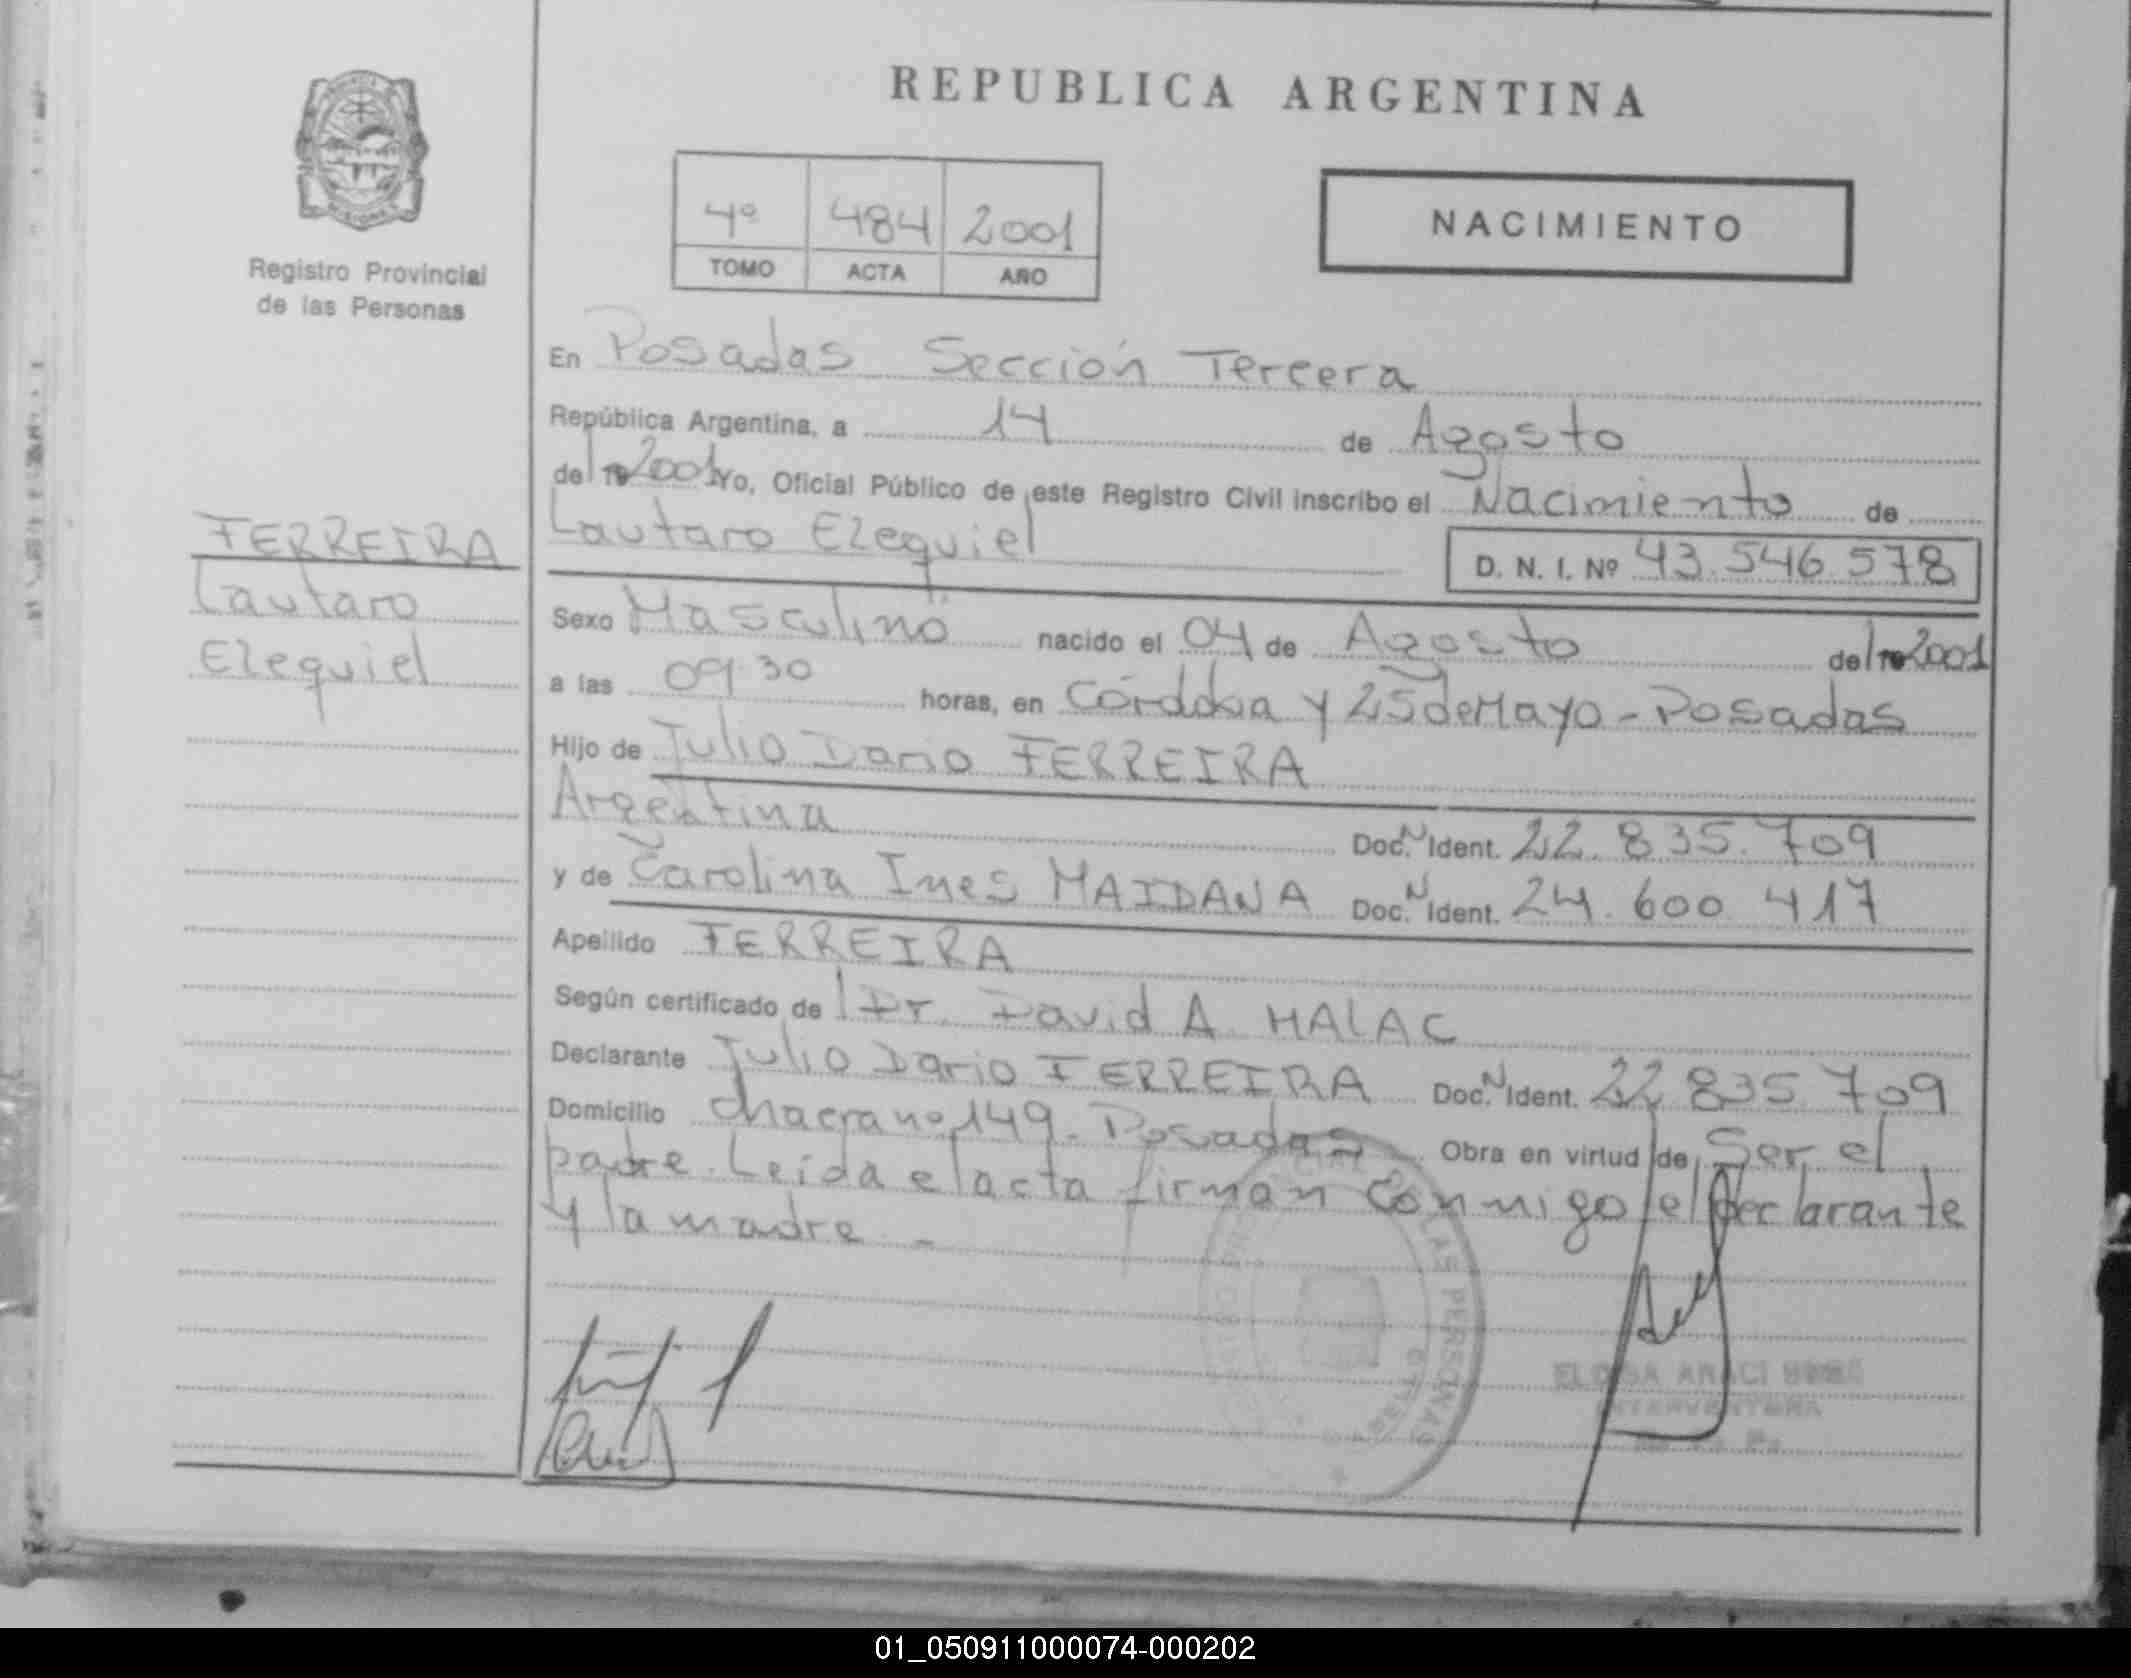 REPUBLICA ARGENTINA
4º 484 2001
TOMO ACTA AÑO
NACIMIENTO
MISIONES
Registro Provincial
de las Personas
FERREIRA
Lautaro
Ezequiel
En Posadas Sección Tercera
República Argentina, a 14 de Agosto
del 2001 Yo, Oficial Público de este Registro Civil inscribo el Nacimiento de
Lautaro Ezequiel D. N. I. Nº 43.546.578
Sexo Masculino nacido el 04 de Agosto del 2001
a las 09.30 horas, en Córdoba y 25 de Mayo - Posadas
Hijo de Julio Dario FERREIRA
Argentina Doc. N Ident. 22.835.709
y de Carolina Ines MAIDANA Doc. N Ident. 24.600.417
Apellido FERREIRA
Según certificado de l Dr. David A. HALAC
Declarante Julio Dario FERREIRA Doc. N Ident. 22 835 709
Domicilio chacra nº 149 - Posadas Obra en virtud de Ser el
padre. Leida el acta firman conmigo el declarante
y la madre. -
LAS PERSONAS
INTERVENTORA
01_050911000074-000202